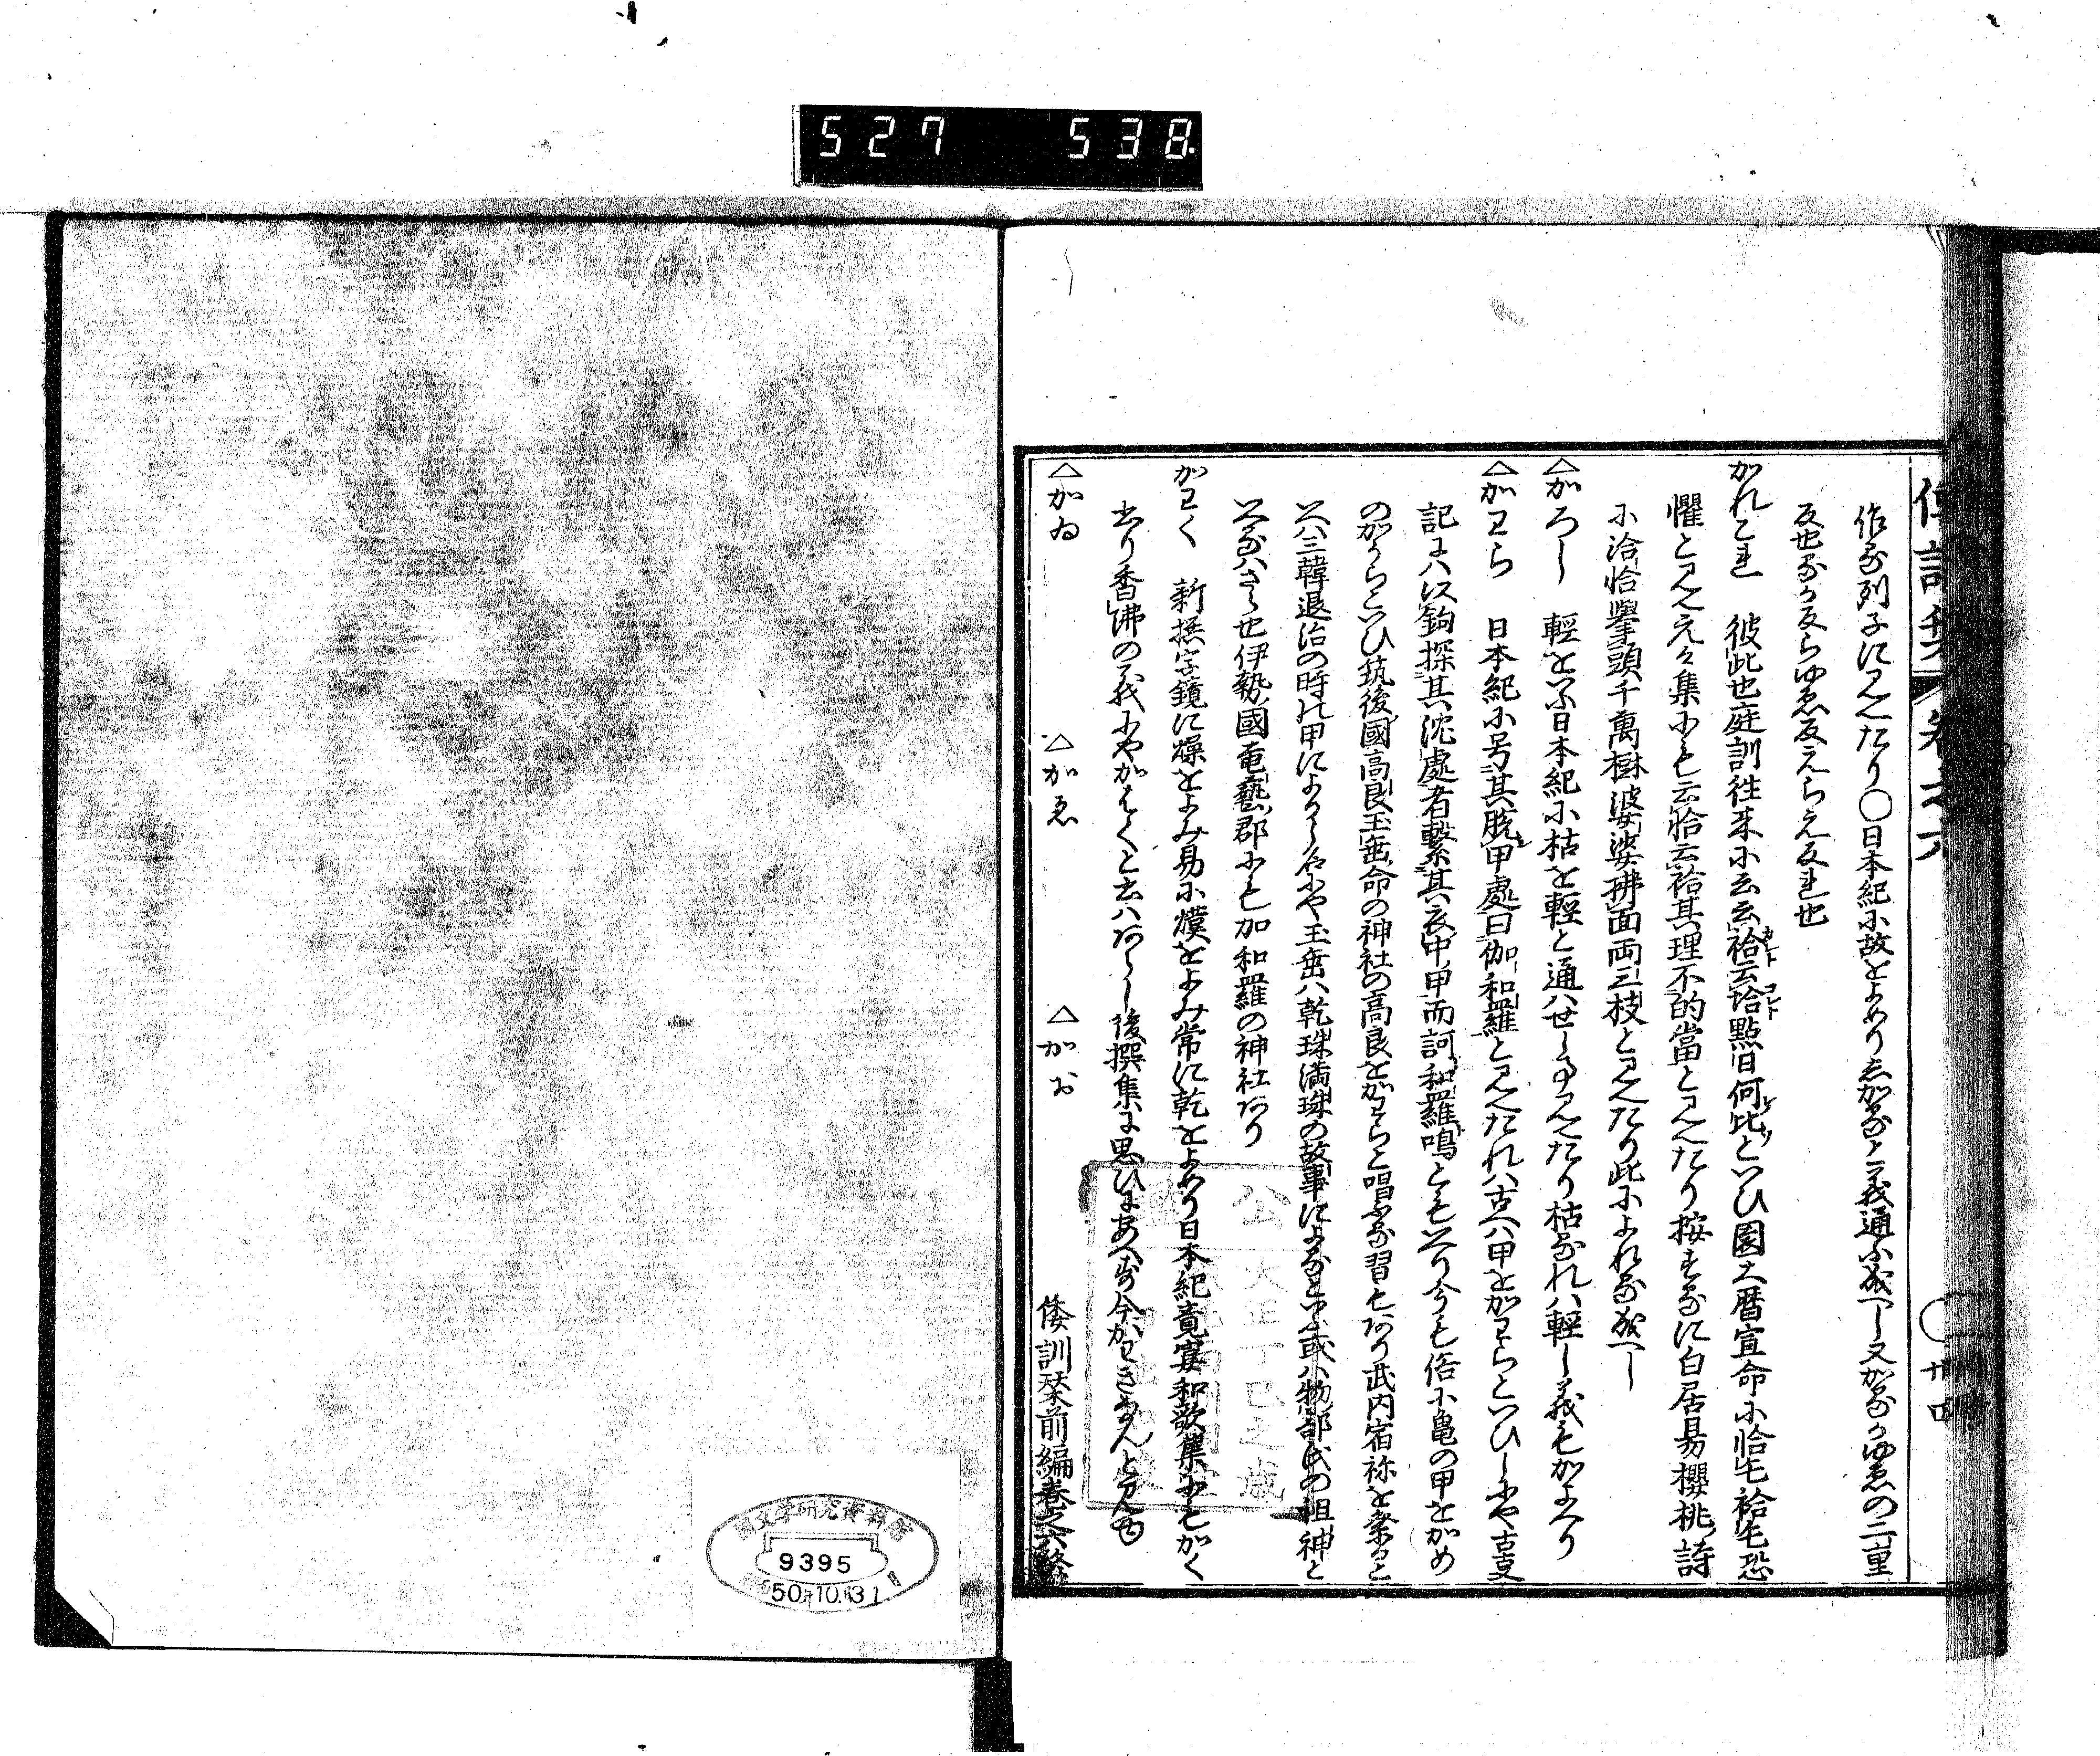 527 538
作る列子に見えたり〇日本紀に故をよめりゑかると義通ふ成へし又かるかゆゑの二里
反也るか反らゆゑ反えらえ反れ也
かれこれ 彼此也庭訓往来に云云袷云恰點旧何比といひ園大暦宣命に恰毛袷毛恐
懼と見え元々集にも云恰云袷其理不的當と見えたり按するに白居易櫻桃詩
に洽恰擧頭千萬樹婆娑拂面両三枝と見えたり此によれる成へし
△かろし 輕をいふ日本紀に枯を輕と通ハせし事見えたり枯るれハ輕し義もかよへり
△かわら 日本紀に号其脱甲處曰伽和羅と見えたれハ古ヘハ甲をかわらといひしにや古叓
記にハ以鉤探其沈處者繫其衣中甲而訶和羅鳴ともいへり今も俗に亀の甲をかめ
のかうらといひ筑後國高良玉垂命の神社の高良をかわらと唱ふる習もあり武内宿祢を祭ると
いへハ三韓退治の時の甲によりし名にや玉垂ハ乾珠満珠の故事によるといふ或ハ物部氏の祖神と
いへるハさら也伊勢國奄藝郡にも加和羅の神社あり
かわく 新撰字鏡に燥をよみ易に熯をよみ常に乾をよめり日本紀竟宴和歌集にもかく
出り香沸の義にやかはくと云ハあしゝ後撰集に思ひにあへす今かわきなんと見ゆ
△かゐ △かゑ △かお 倭訓栞前編巻之六終
廿四
公
大正丁巳之歳
國文学研究資料館
9395
50.10.31